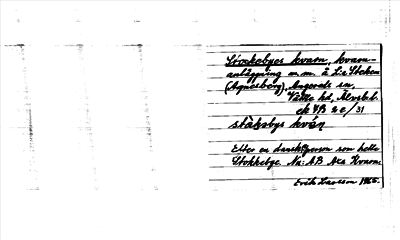 Stockebyes kvarn, kvarn-
anläggning m.m. å L:a Stocken
(Agnesberg), Angereds sn,
Vättle hd, Älvsb.l.
ek 7B 2e/31
ståkəbys kvān
Efter en dansk person som hette
Stokkebye No: AB Ata Kvarn.
Erik Karlsson 1966.